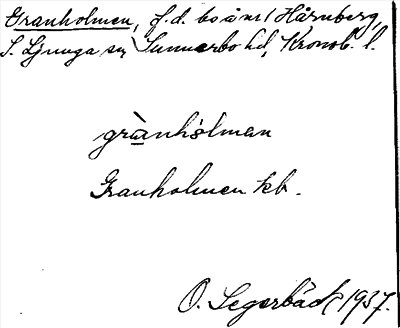 Granholmen, f.d. bo å nr 1 Hårnberg,
S. Ljunga sn, Sunnerbo hd, Kronob. l.
grànhòlman
Granholmen kb.
O. Segerbäck 1937.